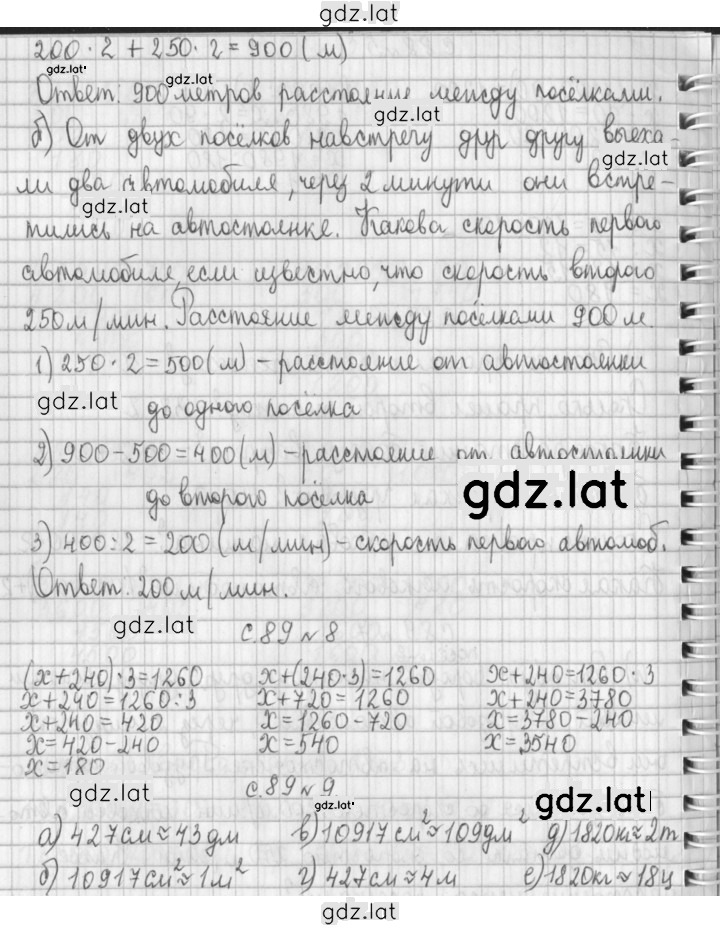 gdz.lat
200 · 2 + 250 · 2 = 900 (м)
gdz.lat
Ответ: 900 метров расстояние между посёлками.
gdz.lat
gdz.lat
б) От двух посёлков навстречу друг другу выеха-
gdz.lat
ли два автомобиля, через 2 минуты они встре-
gdz.lat
тились на автостоянке. Какова скорость первого
автомобиля, если известно, что скорость второго
250 м/мин. Расстояние между посёлками 900 м.
1) 250 · 2 = 500 (м) – расстояние от автостоянки
gdz.lat до одного посёлка
2) 900 – 500 = 400 (м) – расстояние от автостоянки
до второго посёлка gdz.lat
3) 400 : 2 = 200 (м/мин) – скорость первого автомоб.
Ответ. 200 м/мин.
gdz.lat с. 89 № 8
(x+240) · 3 = 1260 x+(240·3)=1260 x+240=1260 · 3
x+240=1260:3 x+720=1260 x+240=3780
x+240=420 x=1260-720 x=3780-240
x=420-240 x=540 x=3540
x=180
gdz.lat с. 89 № 9 gdz.lat gdz.lat
а) 427см≈43дм в) 10917см²≈109дм² д) 1820кг≈2т
б) 10917см²≈1м² г) 427см≈4м е) 1820кг≈18ц
gdz.lat